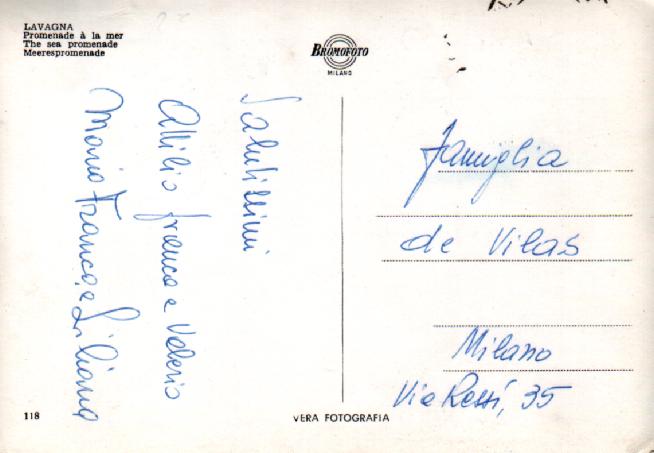 LAVAGNA
Promenade à la mer
The sea promenade
Meerespromenade
BROMOFOTO
MILANO
Salutissimi
Attilio franca e Valerio
Maria Franca, e Liliana
famiglia
de Vilas
Milano
Via Ressi, 35
118
VERA FOTOGRAFIA